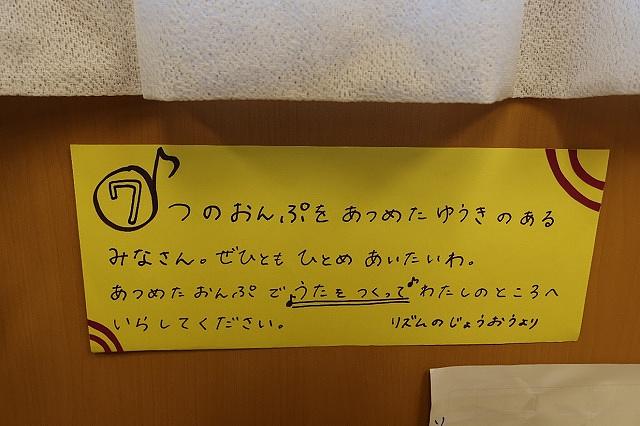 7つのおんぷを あつめた ゆうきのある
みなさん。ぜひとも ひとめ あいたいわ。
あつめた おんぷ で ♪うたを つくって♪ わたしのところへ
いらしてください。
リズムのじょうおうより